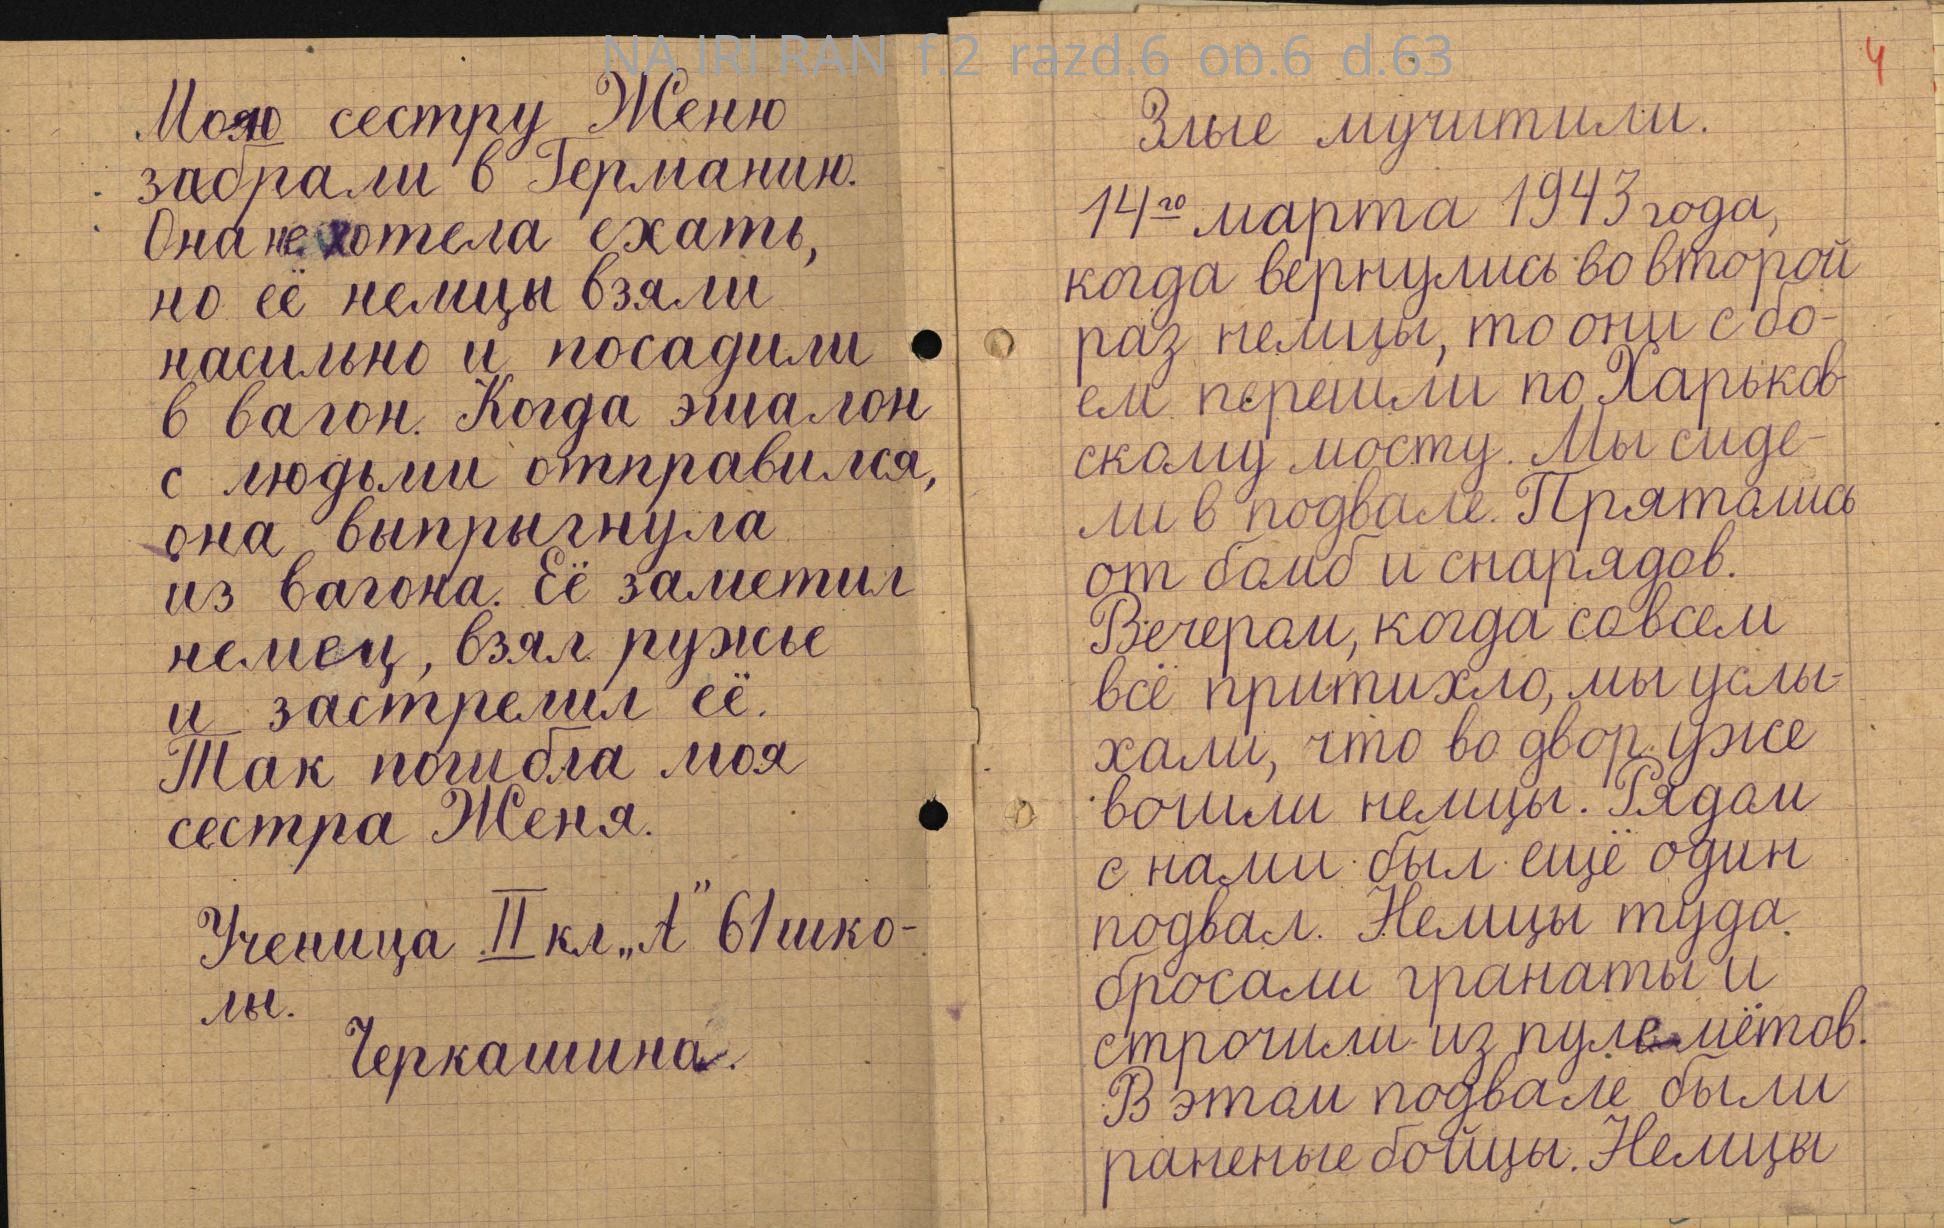 NA IRI RAN f.2 razd.6 op.6 d.63
Мою сестру Женю
забрали в Германию.
Она не хотела ехать,
но её немцы взяли
насильно и посадили
в вагон. Когда эшалон
с людьми отправился,
она выпрыгнула
из вагона. Её заметил
немец, взял ружье
и застрелил её.
Так погибла моя
сестра Женя.
Ученица II кл „А" 61 шко-
лы.
Черкашина.
4
Злые мучитили.
14го марта 1943 года,
когда вернулись во второй
раз немцы, то они с бо-
ем перешли по Харьков-
скому мосту. Мы сиде-
ли в подвале. Прятались
от бомб и снарядов.
Вечером, когда совсем
всё притихло, мы услы-
хали, что во двор уже
вошли немцы. Рядом
с нами был ещё один
подвал. Немцы туда
бросали гранаты и
строчили из пулемётов.
В этом подвале были
раненые бойцы. Немцы